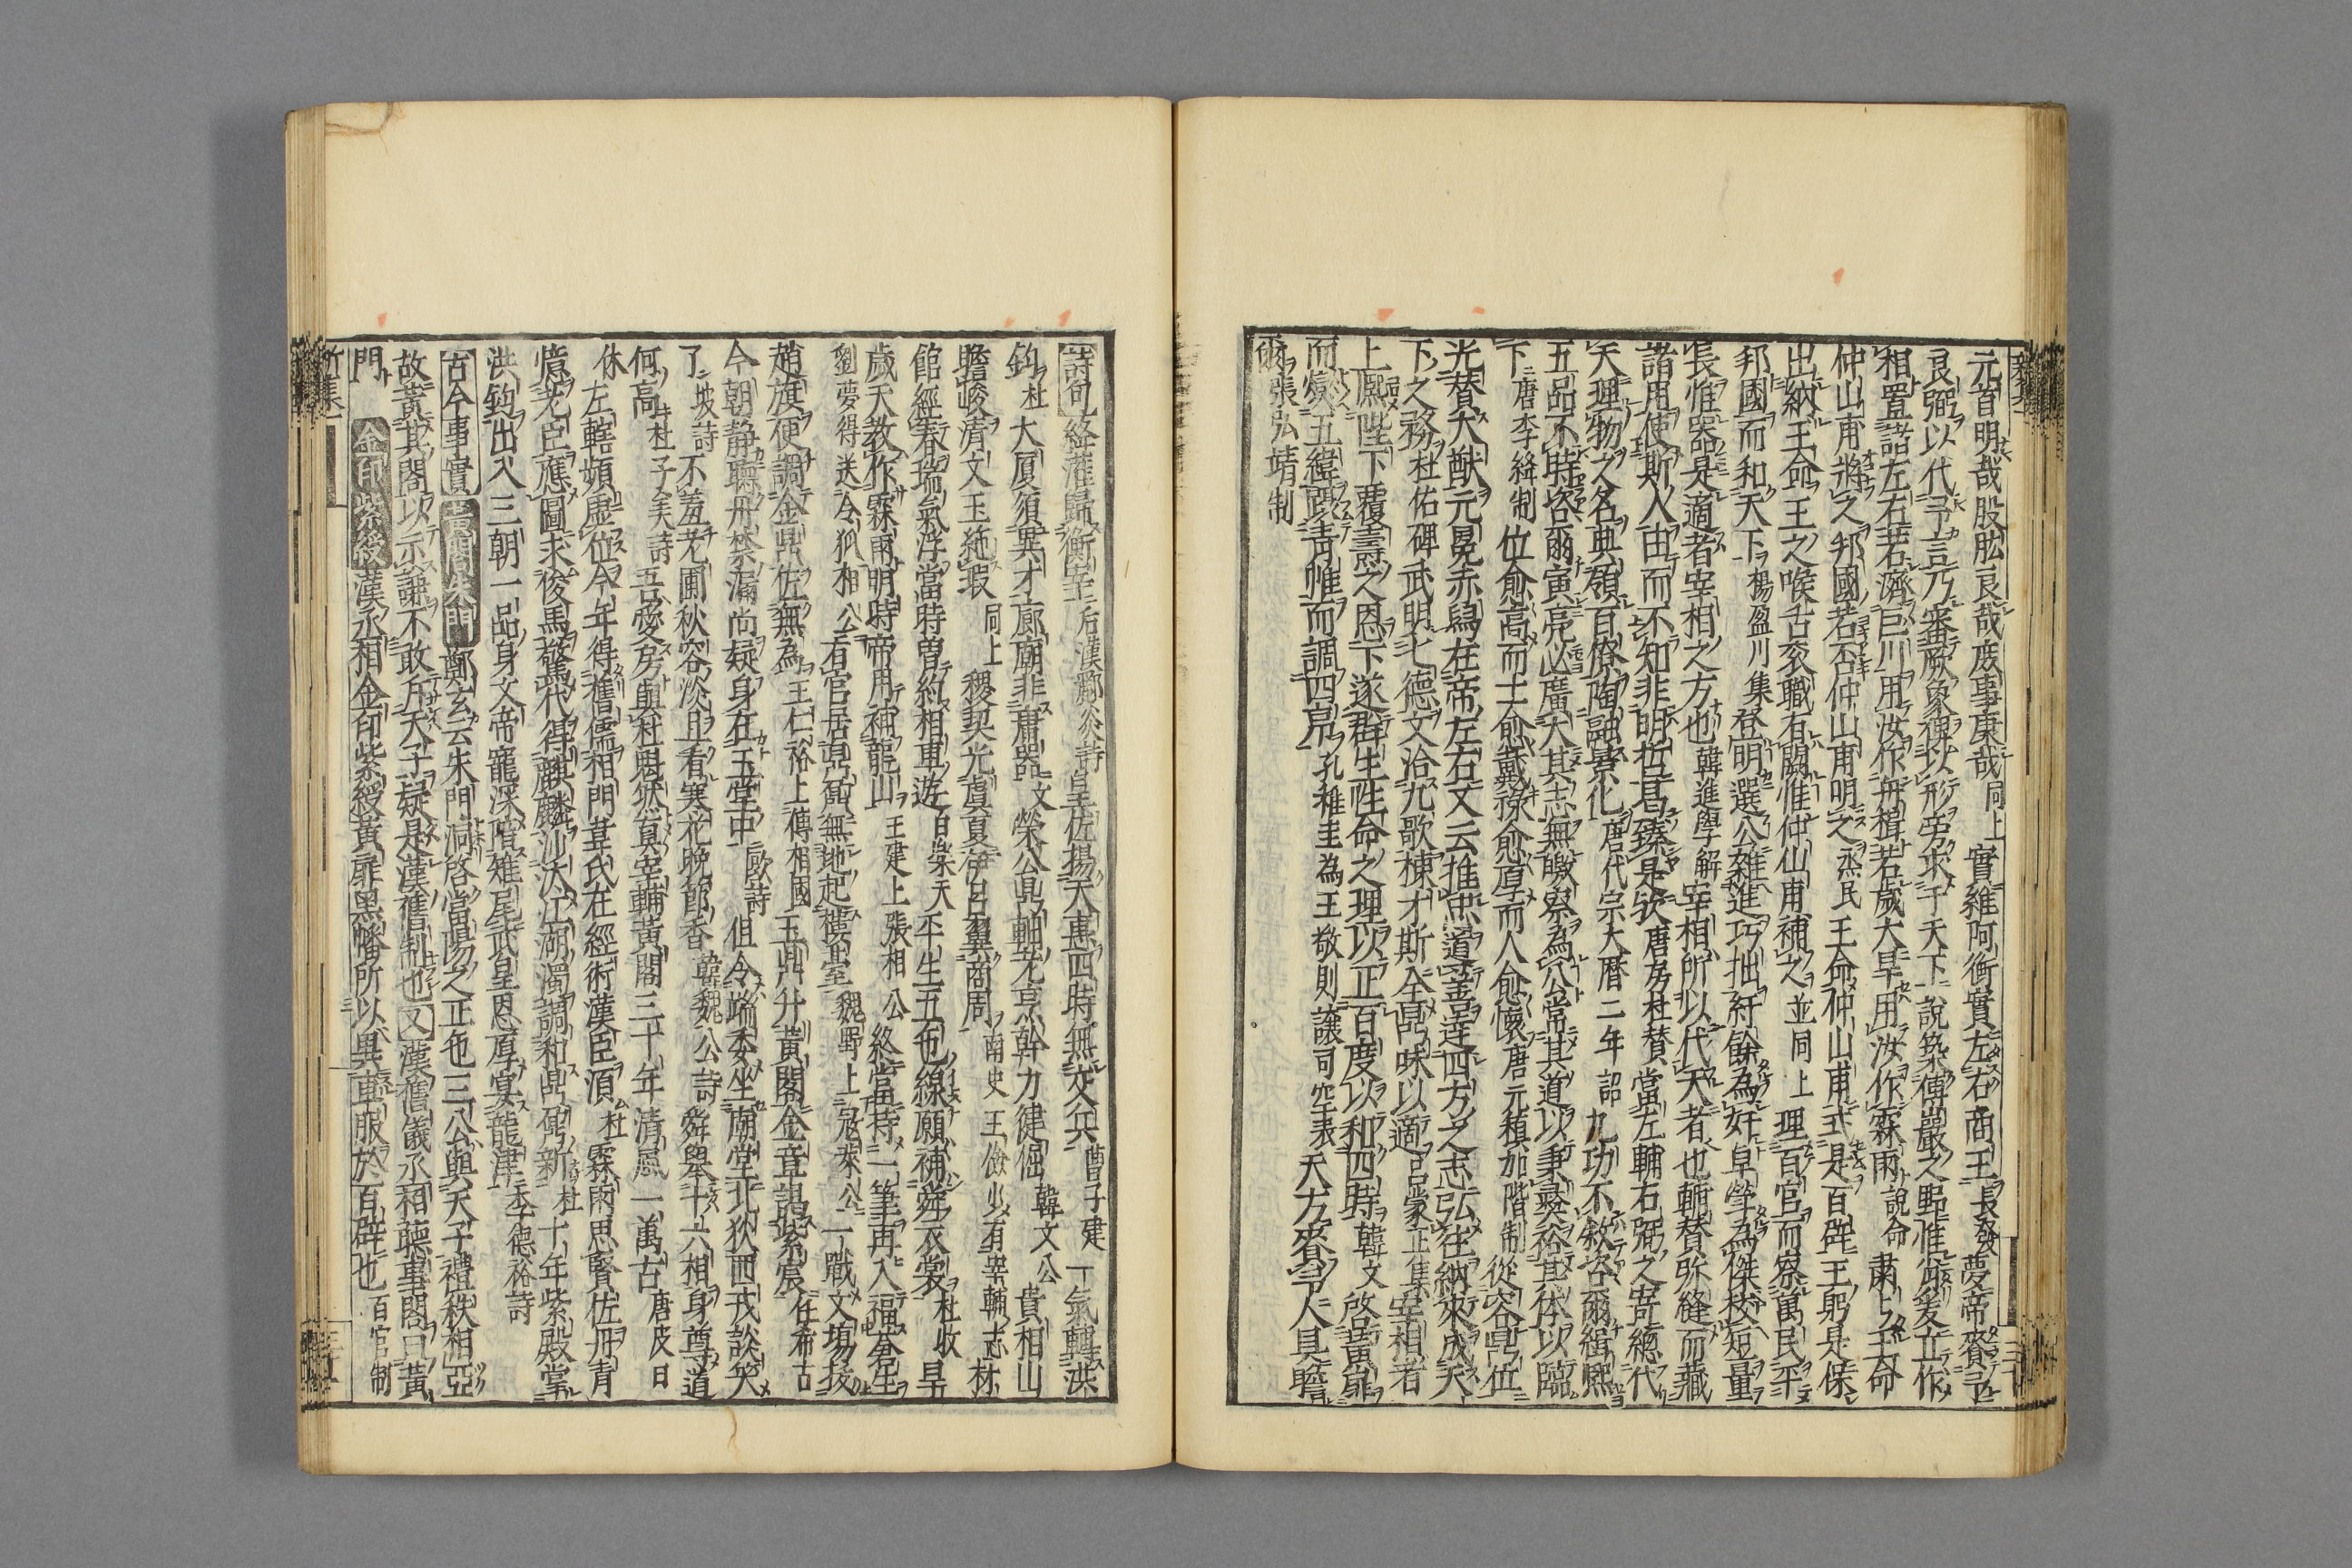 元首明哉股肱良哉庶事康哉同上實維阿衡實左右商王長發夢帝賚予
良弼以代予言乃審厥象俾以形旁求于天下說築傅巖之野惟肖爰立作
相置諸左右若濟巨川用汝作舟楫若歲大旱用汝作霖雨說命肅肅王命
仲山甫將之邦國若否仲山甫明之烝民王命仲山甫式是百辟王躬是保
出納王命王之喉舌袞職有闕惟仲山甫補之並同上理百官而察萬民平
邦國而和天下楊盈川集登明選公雜進巧拙紆餘為妍卓犖為傑校短量
長惟器是適者宰相之方也韓進學解宰相所以代天者也輔贊弥縫而藏
諸用使斯人由而不知非明哲曷臻是欤唐房杜賛當左輔右弼之寄總代
天理物之名典領百僚陶融景化唐代宗大暦二年詔九功不敘咨爾緝熙
五品不時咨爾寅亮必廣大其志無曒察為公常其道以秉彜裕其体以臨
下唐李絳制位愈高而士愈戴祿愈厚而人愈懷唐元稹加階制從容鼎位
光替大猷元冕赤舄在帝左右又云推忠導善達四方之志弘在納來成天
下之務杜佑碑武明七德文洽九歌棟才斯在鼎味以適呂蒙正集宰相者
上熈陛下覆燾之恩下遂群生性命之理以正百度以和四時韓文啓黄扉
而燮五緯踐青帷而調四序孔稚圭為王敬則讓司空表天方賚予人具瞻
爾張弘靖制
詩句絳灌歸衡宰后漢酈炎詩皇佐揚天惠四時無交兵曹子建一氣轉洪
鈞杜大厦須異才廊廟非庸器文榮公鼎軸老烹斡力健倔韓文公貴相山
瞻峻清文玉絶瑕同上稷契光虞夏伊呂翼商周南史王儉少有宰輔志材
館經春瑞氣浮當時曽約相車遊白樂天平生五色線願補舜衣裳杜牧早
歲天教作霖雨明時帝用補龍山王建上張相公終當持一筆再入福蒼生
劉夢得送令狐相公有官居鼎鼐無地起樓臺魏野上寇萊公一職文場技
趙旗便調金鼎佐無為王仁裕上傅相國玉鼎升黄閣金章謁紫宸任希古
今朝静聴丹禁漏尚疑身在玉堂中歐詩但令端委坐廟堂北狄西戎談笑
了坡詩不羞老圃秋容淡且看寒花晩節香韓魏公詩舜舉十六相身尊道
何高杜子美詩吾愛房與杜魁然真宰輔黄閣三十年清風一萬古唐皮日
休左轄頻虚位今年得舊儒相門韋氏在經術漢臣湏杜霖雨思賢佐丹青
憶老臣應圖求俊馬驚代得麒麟沙汰江湖濁調和鼎鼐新杜十年紫殿掌
洪鈞出入三朝一品身文帝寵深陪雉尾武皇恩厚宴龍津李德裕詩
古今事實黄閣朱門鄭玄云朱門洞啓當陽之正色三公與天子禮秩相亞
故黄其閣以示謙不敢斥天子疑是漢舊制也又漢舊儀丞相聴事閣曰黄
門金印紫綬漢丞相金印紫綬黄扉黒幡所以異車服於百辟也百官制